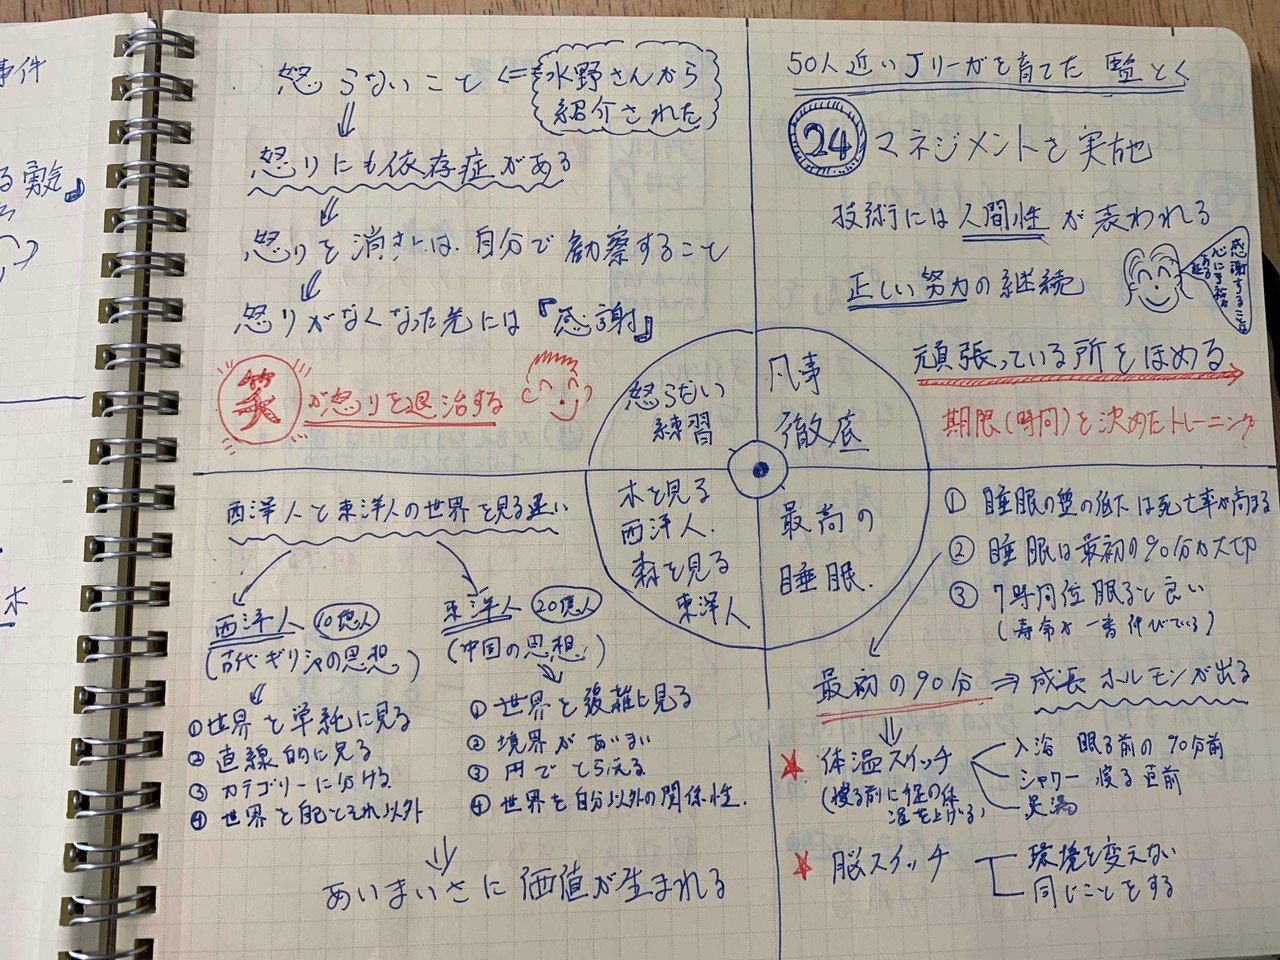 事件
る勇気♪
木
怒らないこと ⇐
水野さんから
紹介された
怒りにも依存症がある
怒りを消すには、自分で勧察すること
怒りがなくなった先には『感謝』
笑が怒りを退治する
50人近いJリーガを育てた 監とく
24 マネジメントを実施
技術には人間性が表われる
正しい努力の継続
感謝すること
頑張っている所をほめる
期限(時間)を決めたトレーニング
怒らない
練習
凡事
徹底
木を見る
西洋人.
森を見る
東洋人
最高の
睡眠.
西洋人と東洋人の世界を見る違い
西洋人 10億人
(古代ギリシャの思想)
①世界を単純に見る
②直線的に見る
③カテゴリーに分ける
④世界を自己とそれ以外
東洋人 20億人
(中国の思想)
①世界を複雑に見る
②境界があいまい
③円でとらえる
④世界を自分以外の関係性.
あいまいさに価値が生まれる
①睡眠の量の低下は死亡率が高まる
②睡眠は最初の90分が大切
③7時間位眠ると良い
(寿命が一番伸びている)
最初の90分 ⇒ 成長ホルモンが出る
★体温スイッチ
(寝る前に体の体
温を上げる)
入浴 眠る前の90分前
シャワー 寝る直前
足湯
★脳スイッチ
環境を変えない
同じことをする